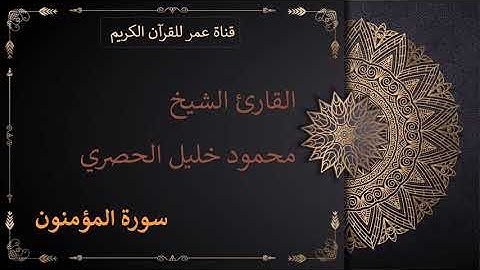 قناة عمر للقرآن الكريم
القارئ الشيخ
محمود خليل الحصري
سورة المؤمنون